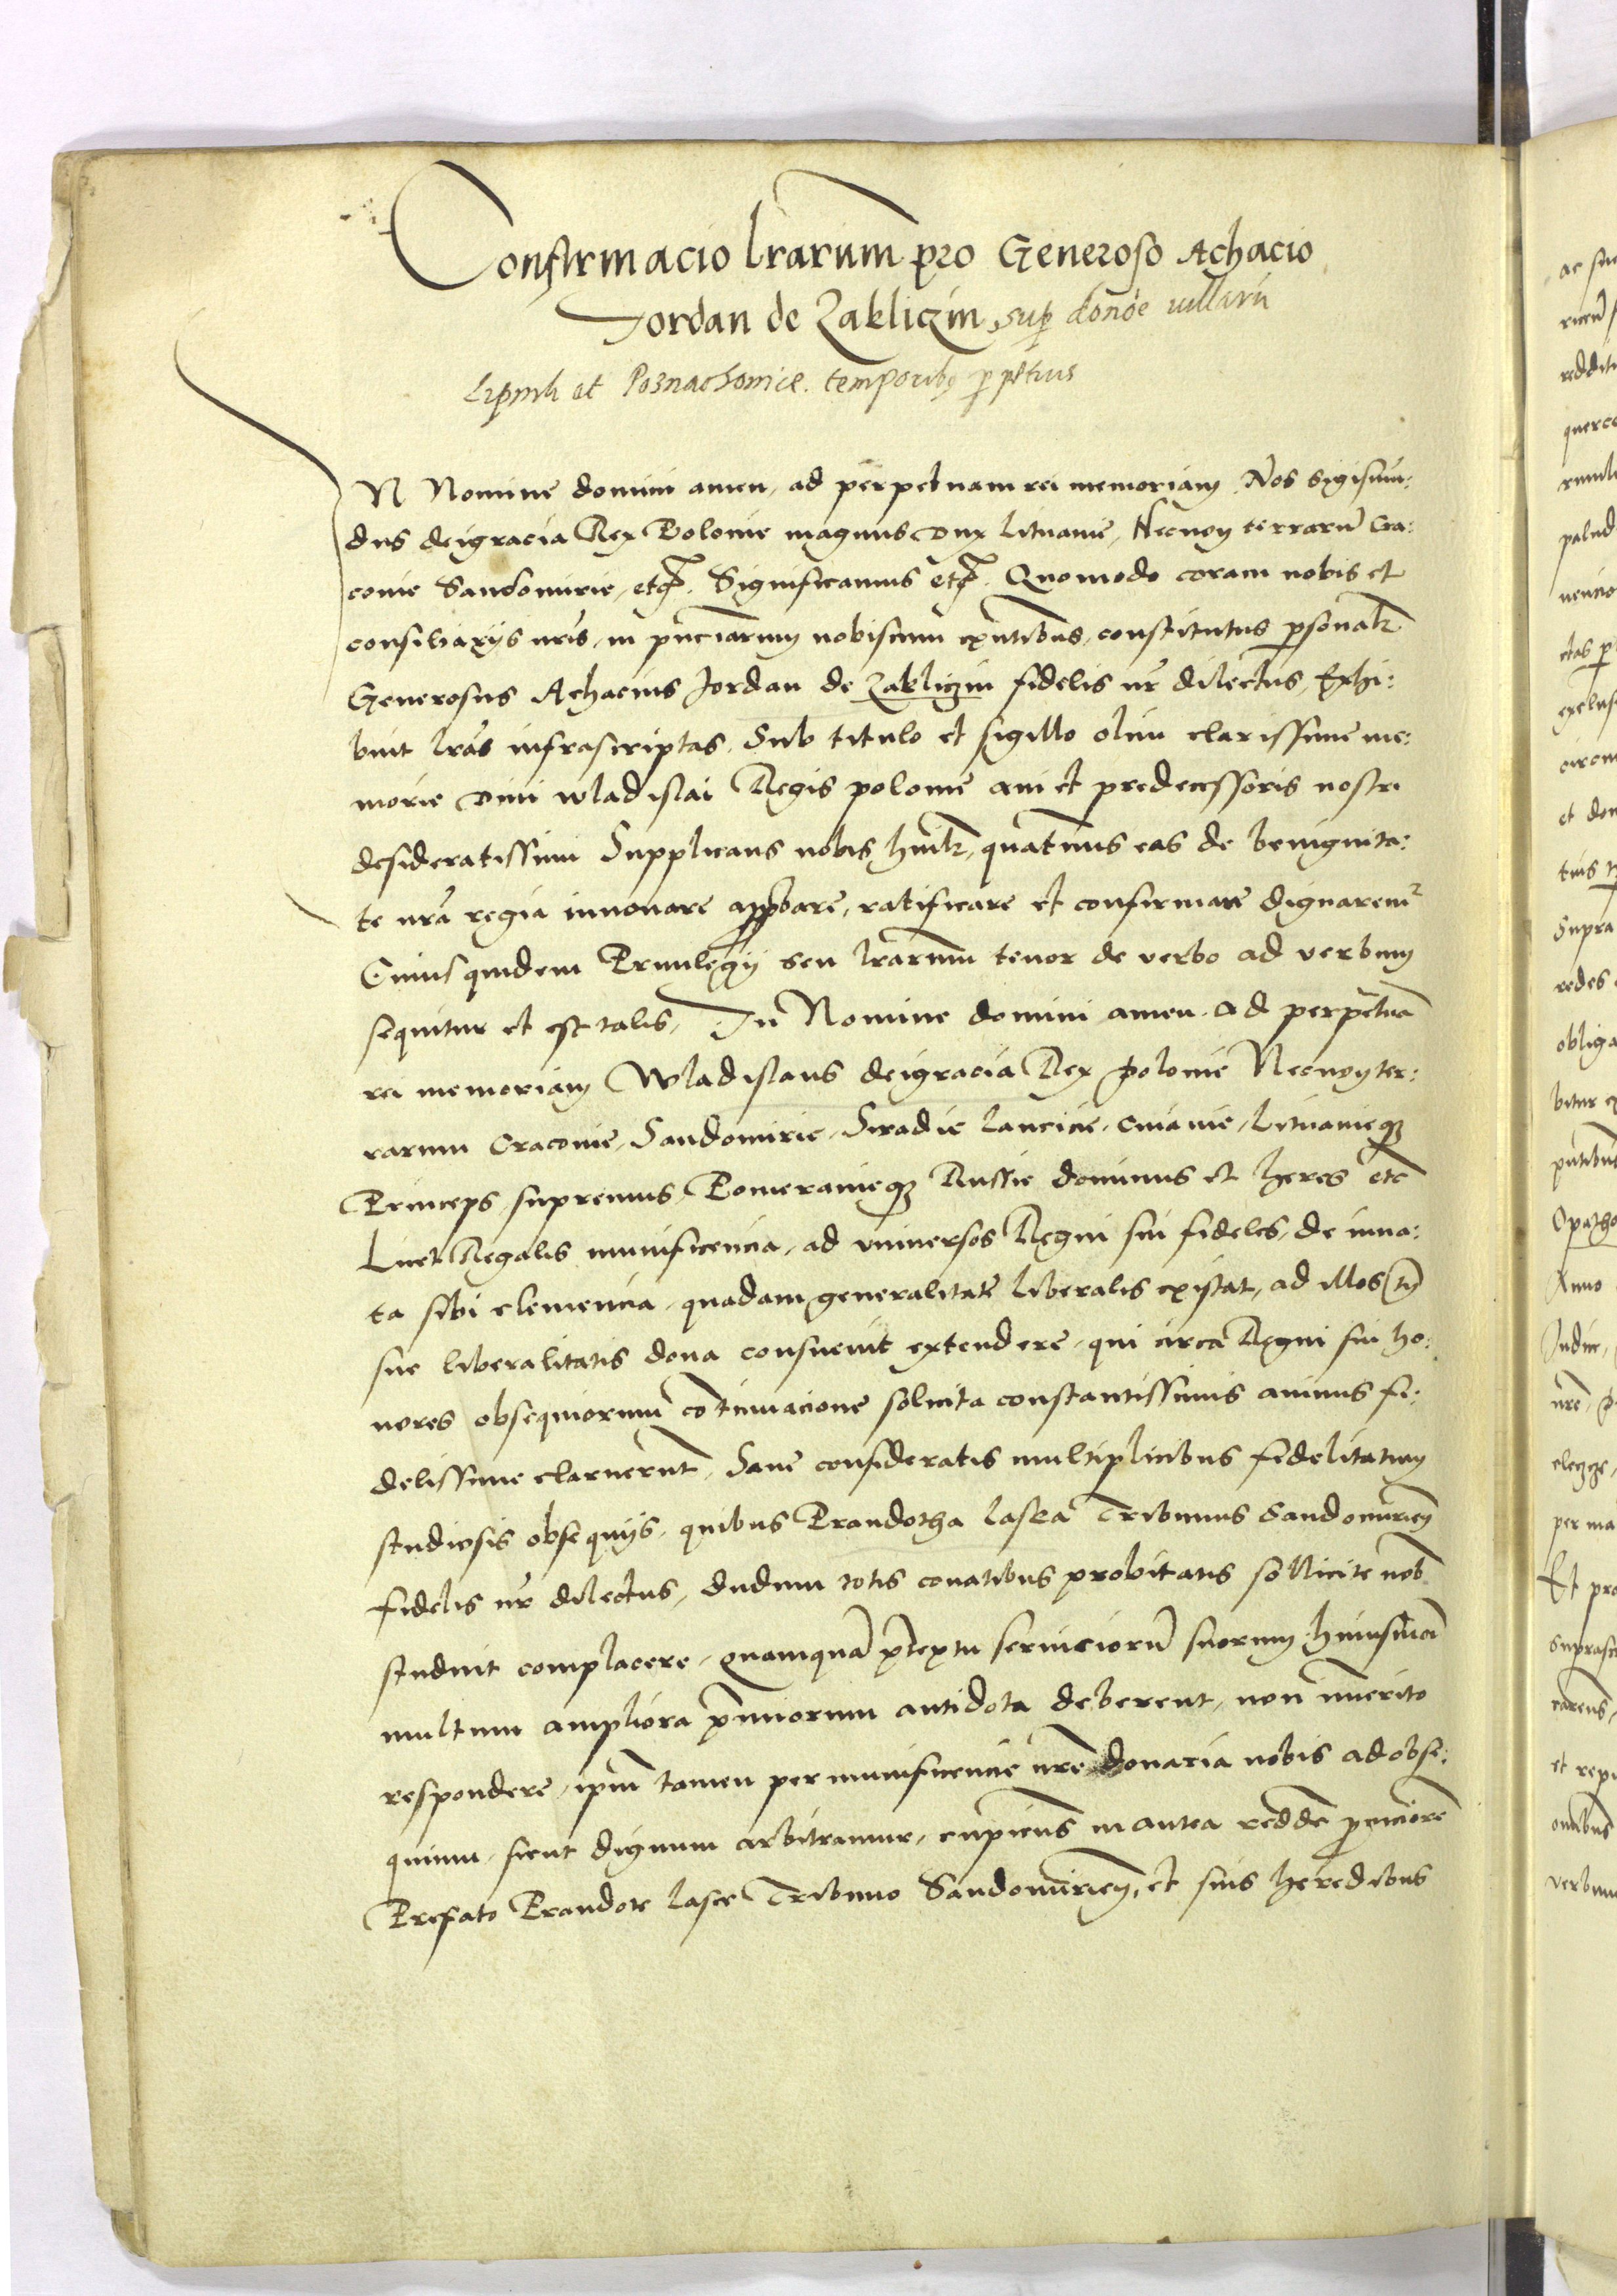 Confirmacio lrarum pro Generoso Achacio
Jordan de Zakliczin sup donoe villarū
Lipnik et Poznachowice temporibꝫ ppetuis
IN Nomine domini amen, ad perpetuam rei memoriam. Nos Sigismū:
dus dei gracia Rex Polonie magnus Dux Lituanie, Necnon terrarū Cra:
covie Sandomirie, etc. Significamus etc. Quomodo coram nobis et
consiliariis nris, in pnciarum nobiscum exntibus, constitutus psonalr
Generosus Achacius Jordan de Zakliczin fidelis nr dilectus, Exhi:
buit lras infrascriptas. Sub titulo et sigillo olim clarissime me:
morie Dni Wladislai Regis polonie avi et predecessoris nostri
desideratissimi Supplicans nobis humilr, quatenus eas de benignita:
te nra regia innovare approbare, ratificare et confirmare dignaremr
Cuiusquidem Privilegij seu lrarum tenor de verbo ad verbum
sequitur et est talis, In Nomine domini amen. ad perpetuā
rei memoriam Wladislaus dei gracia Rex polonie Necnon ter:
rarum Cracovie, Sandomirie, Siradie Lancicie, Cuiavie, Lituanieqꝫ
Princeps supremus, Pomeranieqꝫ Russie dominus et heres etc
Licet Regalis munificencia, ad universos Regni sui fideles, de inna:
ta sibi clemencia, quadam generalitate liberalis existat, ad illos tn
sue liberalitatis dona consuevit extendere, qui circa Regni sui ho:
nores obsequiorum cōtinuacione solicita constantissimis animis fi:
delissime claruerunt, Sane consideratis multiplicibus fidelitatum
studiosis obsequijs, quibus Prandotha Laska Tribunus Sandomirien
fidelis nr dilectus, dudum totis conatibus probitatis sollicite nob
studuit complacere, quamquā ptextu serviciorū suorum huiusmōi
multum ampliora pmiorum antidota deberent, non immerito
respondere, ipm tamen per munificencie nre donaria nobis ad obse:
quium, sicut dignum arbitramur, cupiens in antea reddē pmciorē
Prefato Prandote Lasce Tribuno Sandomirien, et suis heredibus